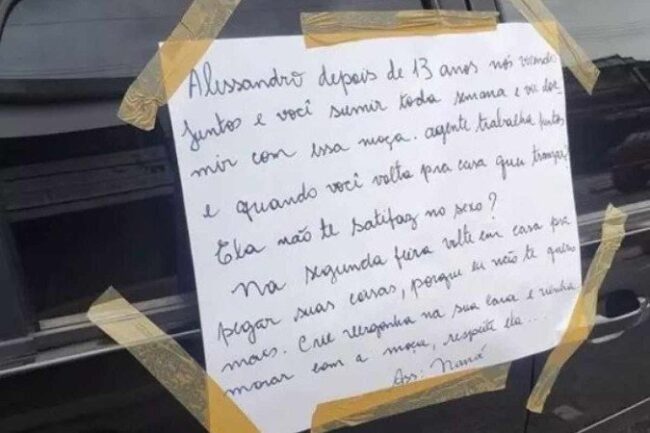 Alessandro depois de 13 anos nós vivendo
juntos e você sumir toda semana e vir dor-
mir com essa moça. agente trabalha juntos
e quando você volta pra casa quer transar?
Ela não te satifaz no sexo?
Na segunda feira volte em casa pra
pegar suas coisas, porque eu não te quero
mais. Crie vergonha na sua cara e venha
morar com a moça, respeite ela...
Ass: Naná